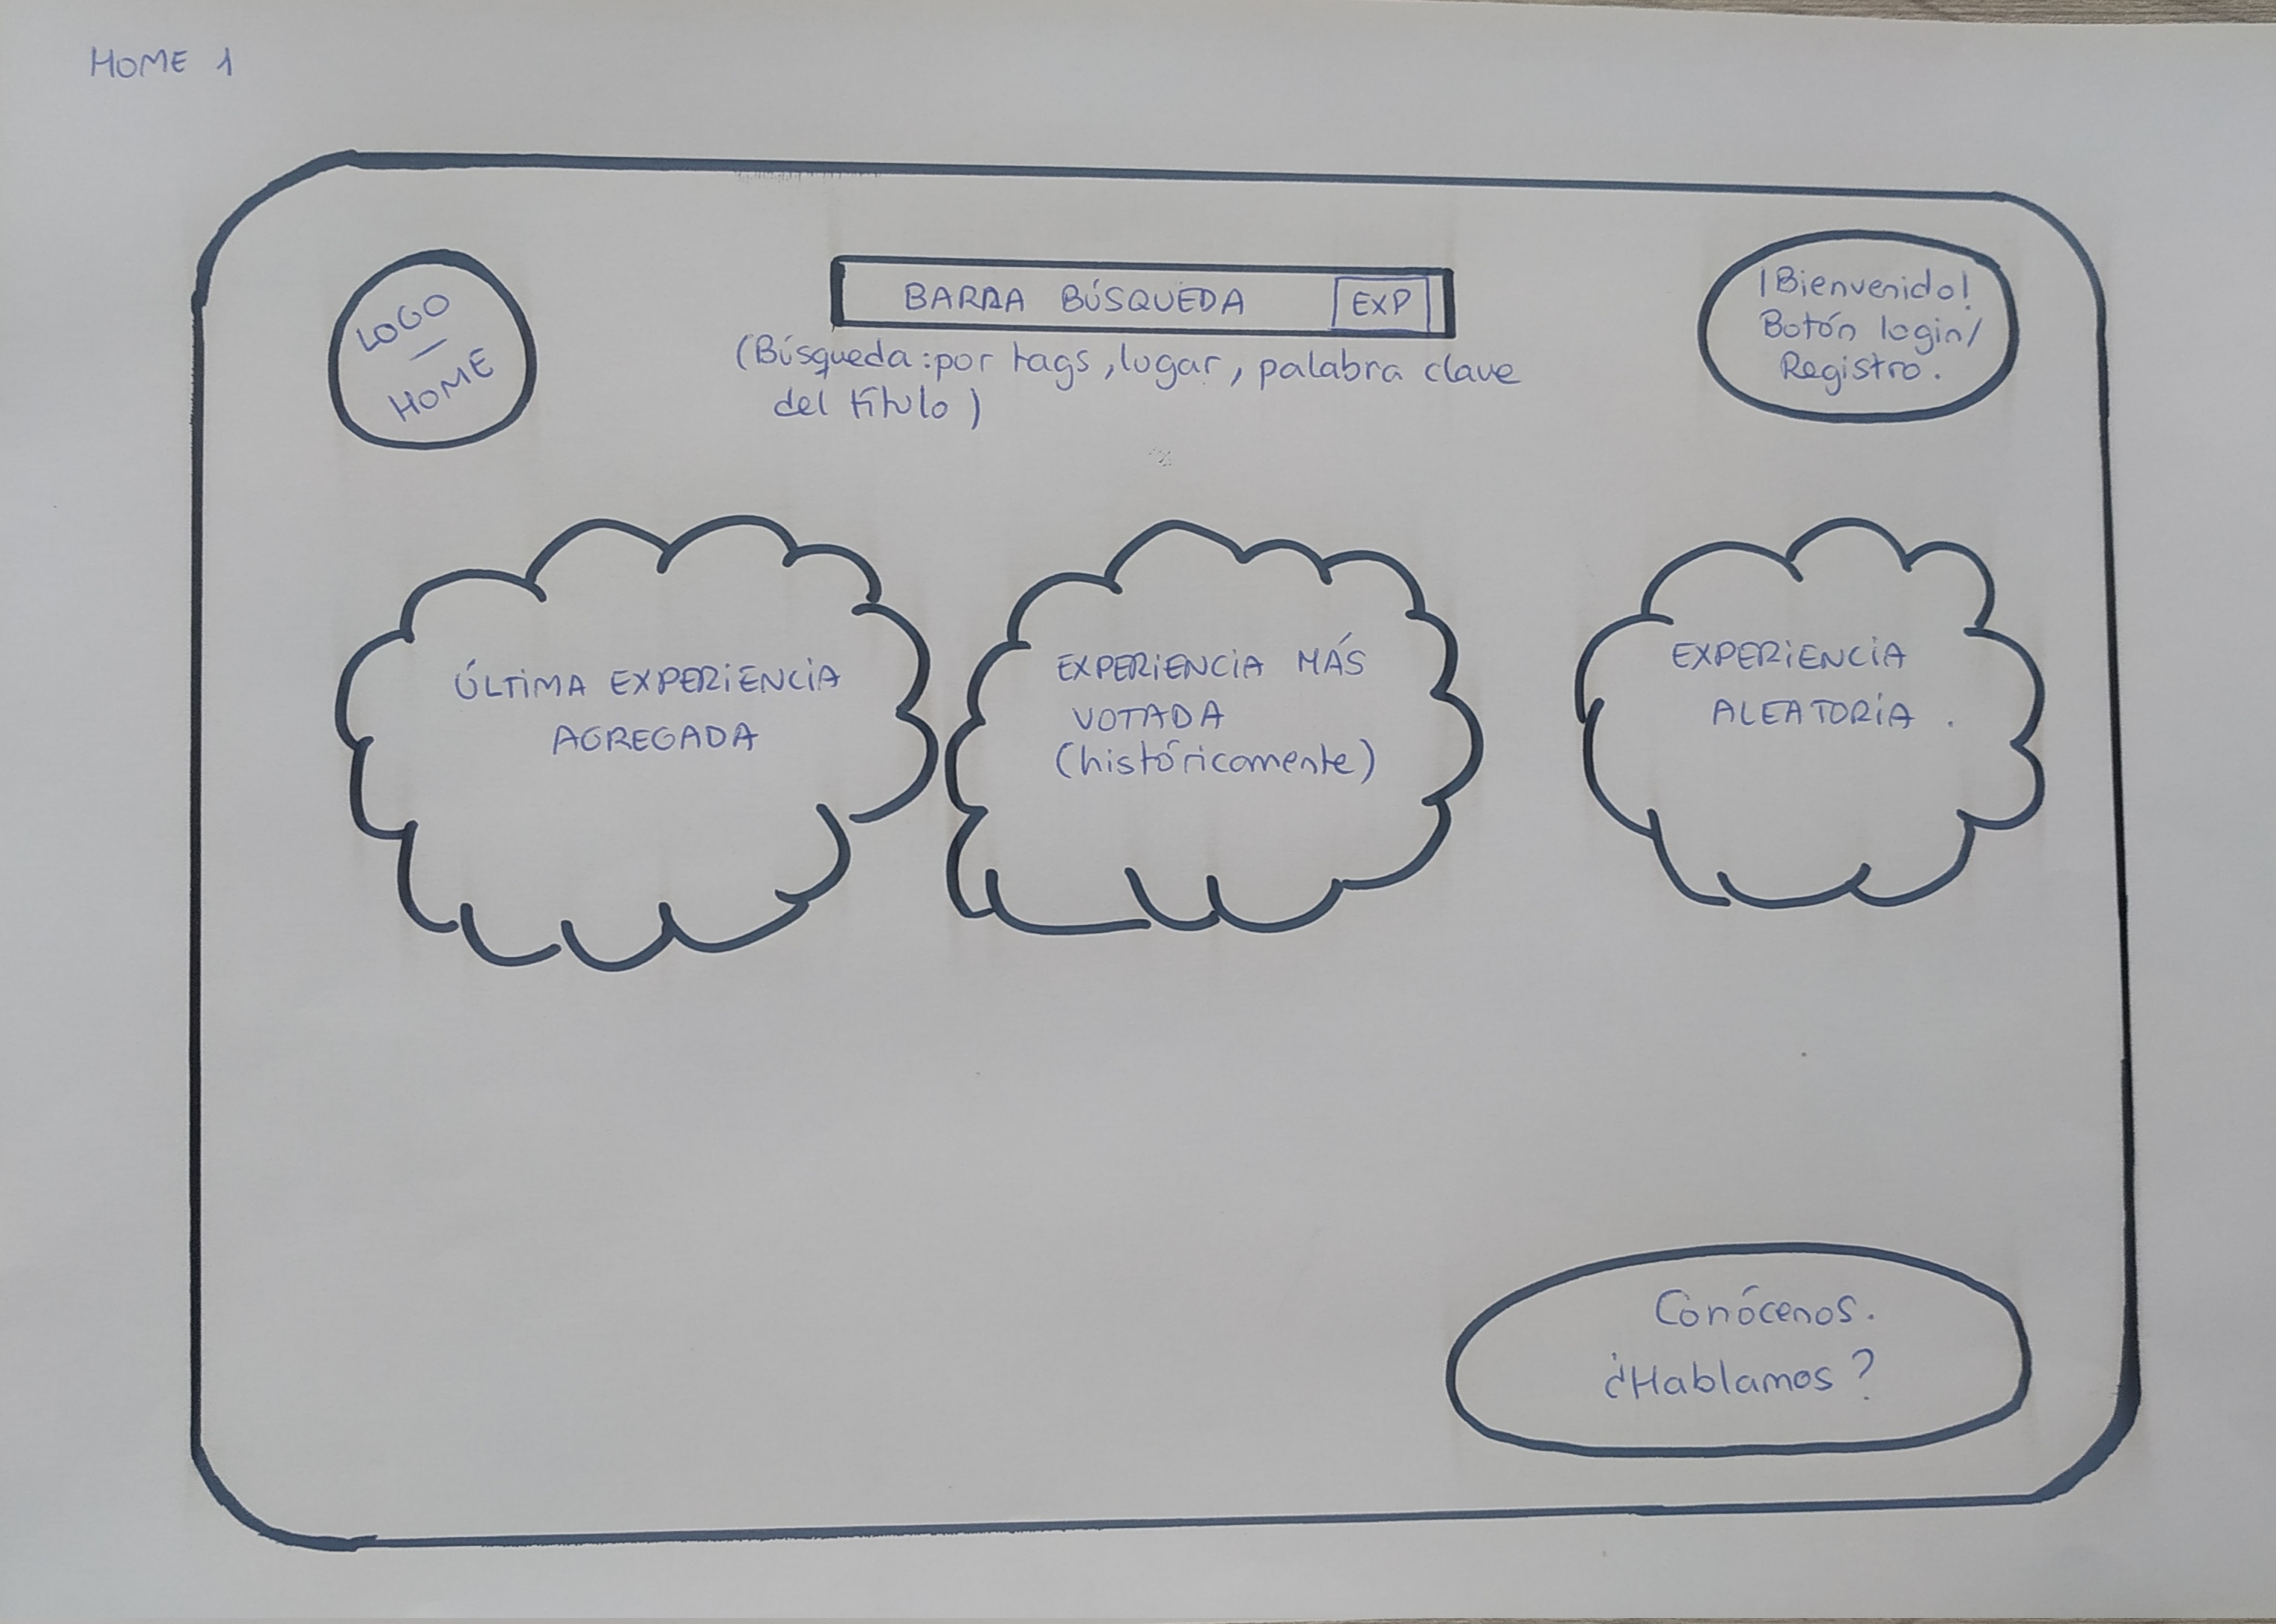 HOME 1
LOGO
—
HOME
BARRA BÚSQUEDA EXP
(Búsqueda: por tags, lugar, palabra clave
del título)
¡Bienvenido!
Botón login/
Registro.
ÚLTIMA EXPERIENCIA
AGREGADA
EXPERIENCIA MÁS
VOTADA
(históricamente)
EXPERIENCIA
ALEATORIA.
Conócenos.
¿Hablamos?